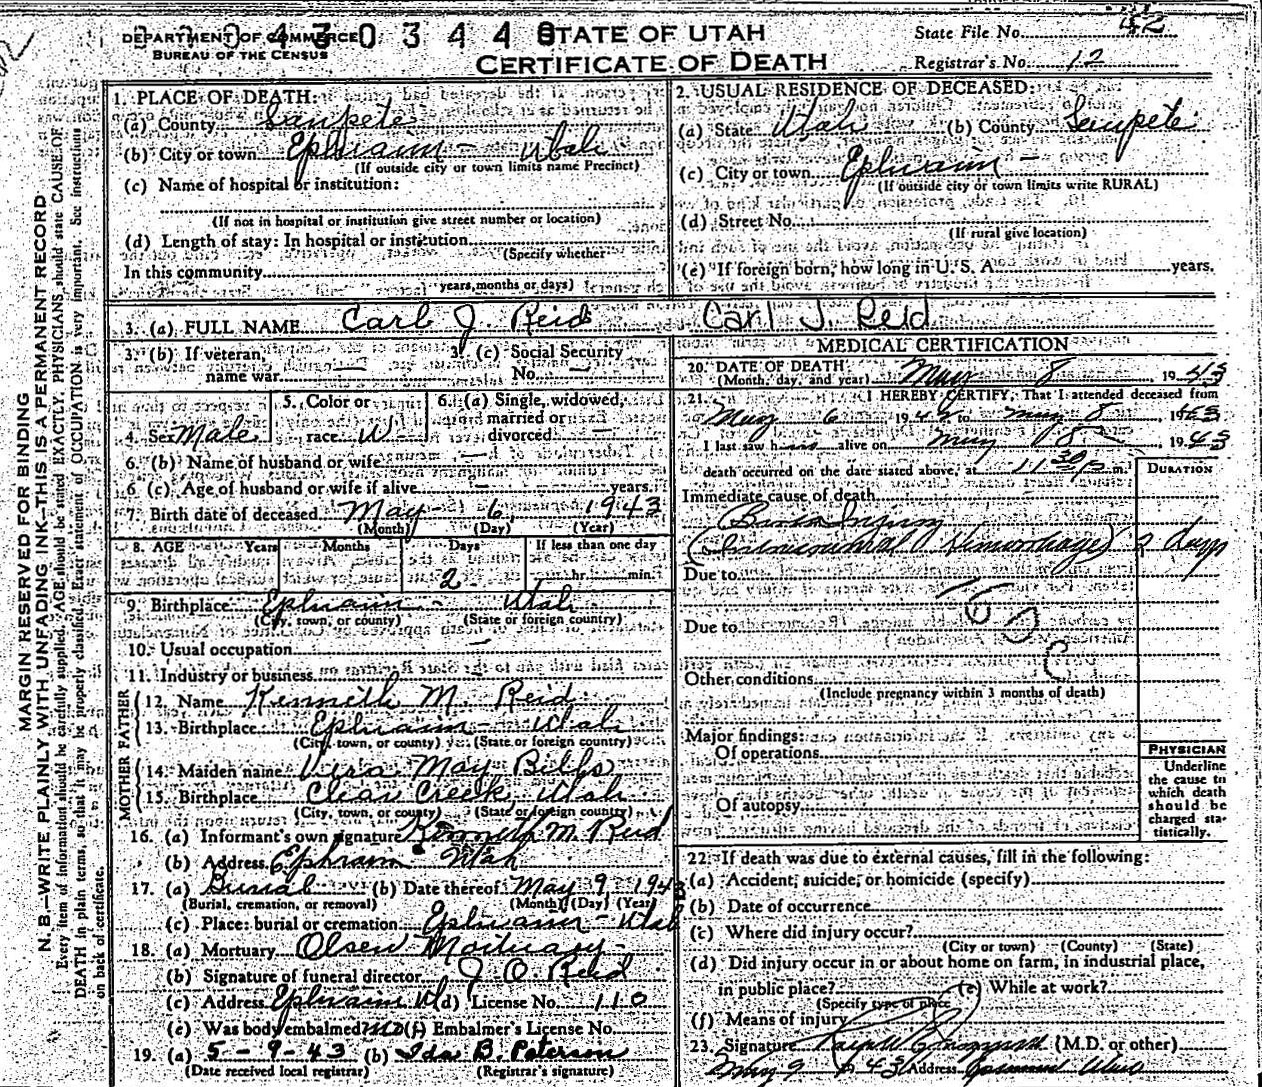 DEPARTMENT OF COMMERCE
BUREAU OF THE CENSUS
4 3 0 3 4 4 0
STATE OF UTAH
CERTIFICATE OF DEATH
State File No. 52
Registrar's No. 12
MARGIN RESERVED FOR BINDING
N. B.—WRITE PLAINLY WITH UNFADING INK—THIS IS A PERMANENT RECORD
Every item of information should be carefully supplied. AGE should be stated EXACTLY. PHYSICIANS should state CAUSE OF
DEATH in plain terms, so that it may be properly classified. Exact statement of OCCUPATION is very important. See instructions
on back of certificate.
1. PLACE OF DEATH:
(a) County Sanpete
(b) City or town Ephraim - Utah
(If outside city or town limits name Precinct)
(c) Name of hospital or institution:
(If not in hospital or institution give street number or location)
(d) Length of stay: In hospital or institution
(Specify whether
In this community
years, months or days)
2. USUAL RESIDENCE OF DECEASED:
(a) State Utah (b) County Sanpete
(c) City or town Ephraim -
(If outside city or town limits write RURAL)
(d) Street No.
(If rural give location)
(e) If foreign born, how long in U. S. A. years.
3. (a) FULL NAME Carl J. Reid Carl J. Reid
3. (b) If veteran, name war —
3. (c) Social Security No. —
4. Sex Male
5. Color or race W
6. (a) Single, widowed, married or divorced —
6. (b) Name of husband or wife —
6 (c) Age of husband or wife if alive - years.
7. Birth date of deceased May - 6 1943
(Month) (Day) (Year)
8. AGE Years Months Days If less than one day
2 hr. min.
9. Birthplace Ephraim - Utah
(City, town, or county) (State or foreign country)
10. Usual occupation —
11. Industry or business
FATHER
12. Name Kenneth M. Reid
13. Birthplace Ephraim - Utah
(City, town, or county) (State or foreign country)
MOTHER
14. Maiden name May
15. Birthplace Clear Creek, Utah
(City, town, or county) (State or foreign country)
16. (a) Informant's own signature Kenneth M. Reid
(b) Address Ephraim Utah
17. (a) Burial (b) Date thereof May 9, 1943
(Burial, cremation, or removal) (Month) (Day) (Year)
(c) Place: burial or cremation Ephraim - Utah
18. (a) Mortuary Olsen Mortuary
(b) Signature of funeral director J. O. Reid
(c) Address Ephraim U (d) License No. 110
(e) Was body embalmed? no (f) Embalmer's License No.
19. (a) 5 - 9 - 43 (b) Ida B. Peterson
(Date received local registrar) (Registrar's signature)
MEDICAL CERTIFICATION
20. DATE OF DEATH
(Month, day, and year) May 8 1943
21. I HEREBY CERTIFY, That I attended deceased from
May 6 19 to May 8, 1943
I last saw him alive on May 8, 1943
death occurred on the date stated above, at 11 30 p m.
DURATION
Immediate cause of death
Birth Injury
(Intracranial Hemorrhage) 2 days
Due to
Due to
Other conditions
(Include pregnancy within 3 months of death)
Major findings:
Of operations
Of autopsy
PHYSICIAN
Underline
the cause to
which death
should be
charged sta-
tistically.
22. If death was due to external causes, fill in the following:
(a) Accident, suicide, or homicide (specify)
(b) Date of occurrence
(c) Where did injury occur?
(City or town) (County) (State)
(d) Did injury occur in or about home on farm, in industrial place,
in public place? (e) While at work?
(Specify type of place)
(f) Means of injury
23. Signature (M.D. or other)
May 9 43 Address